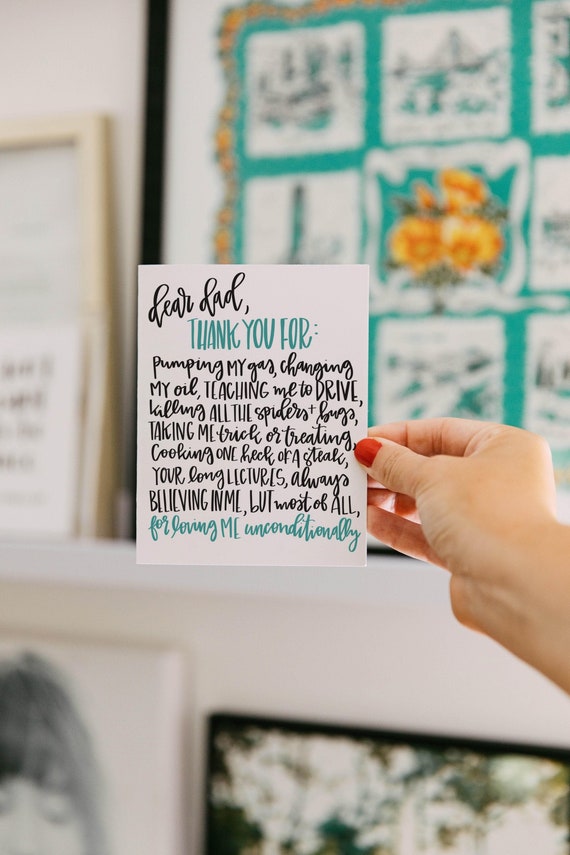 dear dad,
THANK YOU FOR:
Pumping MY gas, changing
MY oil, TEACHING me to DRIVE,
killing ALL THE spiders + bugs,
TAKING ME trick or treating,
Cooking ONE heck OF A steak,
YOUR long LECTURES, always
BELIEVING IN ME, BUT most of ALL,
for loving ME unconditionally